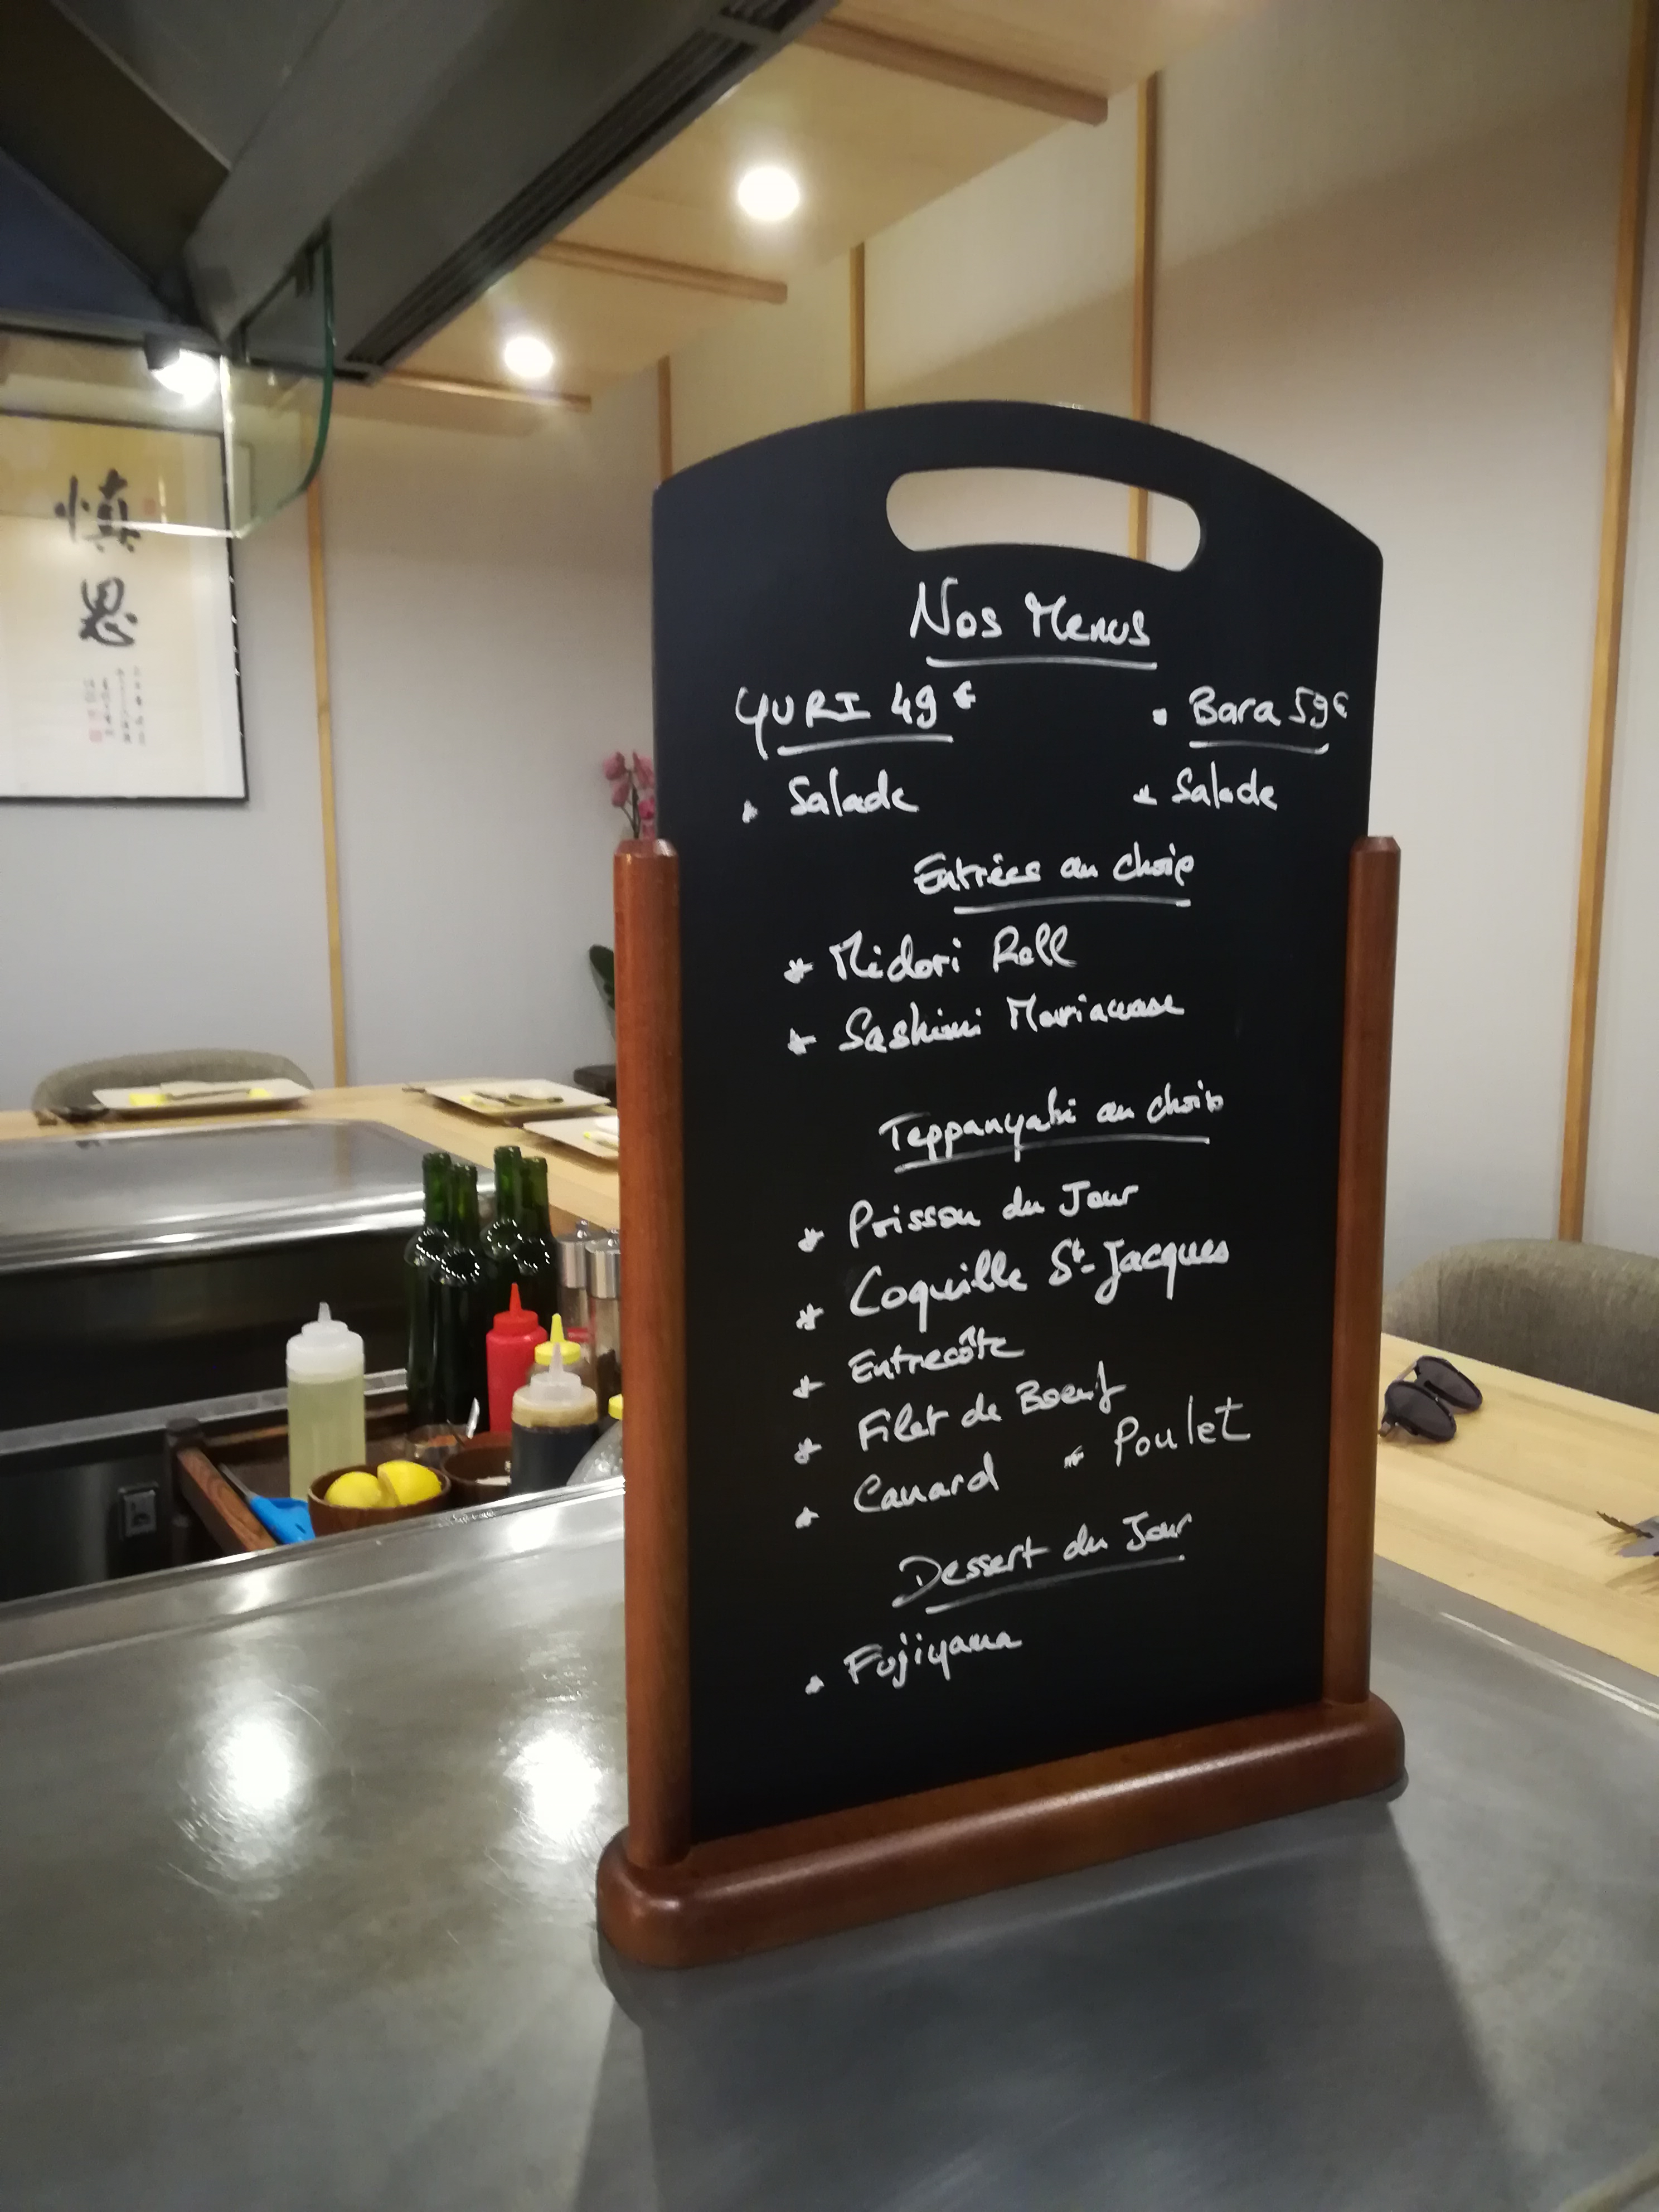 慎
思
Nos Menus
YURI 49€
• Bara 59€
* Salade
* Salade
Entrées au choix
* Midori Roll
* Sashimi Moriawase
Teppanyaki au choix
* Poisson du Jour
* Coquille St-Jacques
* Entrecôte
* Filet de Boeuf
* Canard * Poulet
Dessert du Jour
* Fujiyama